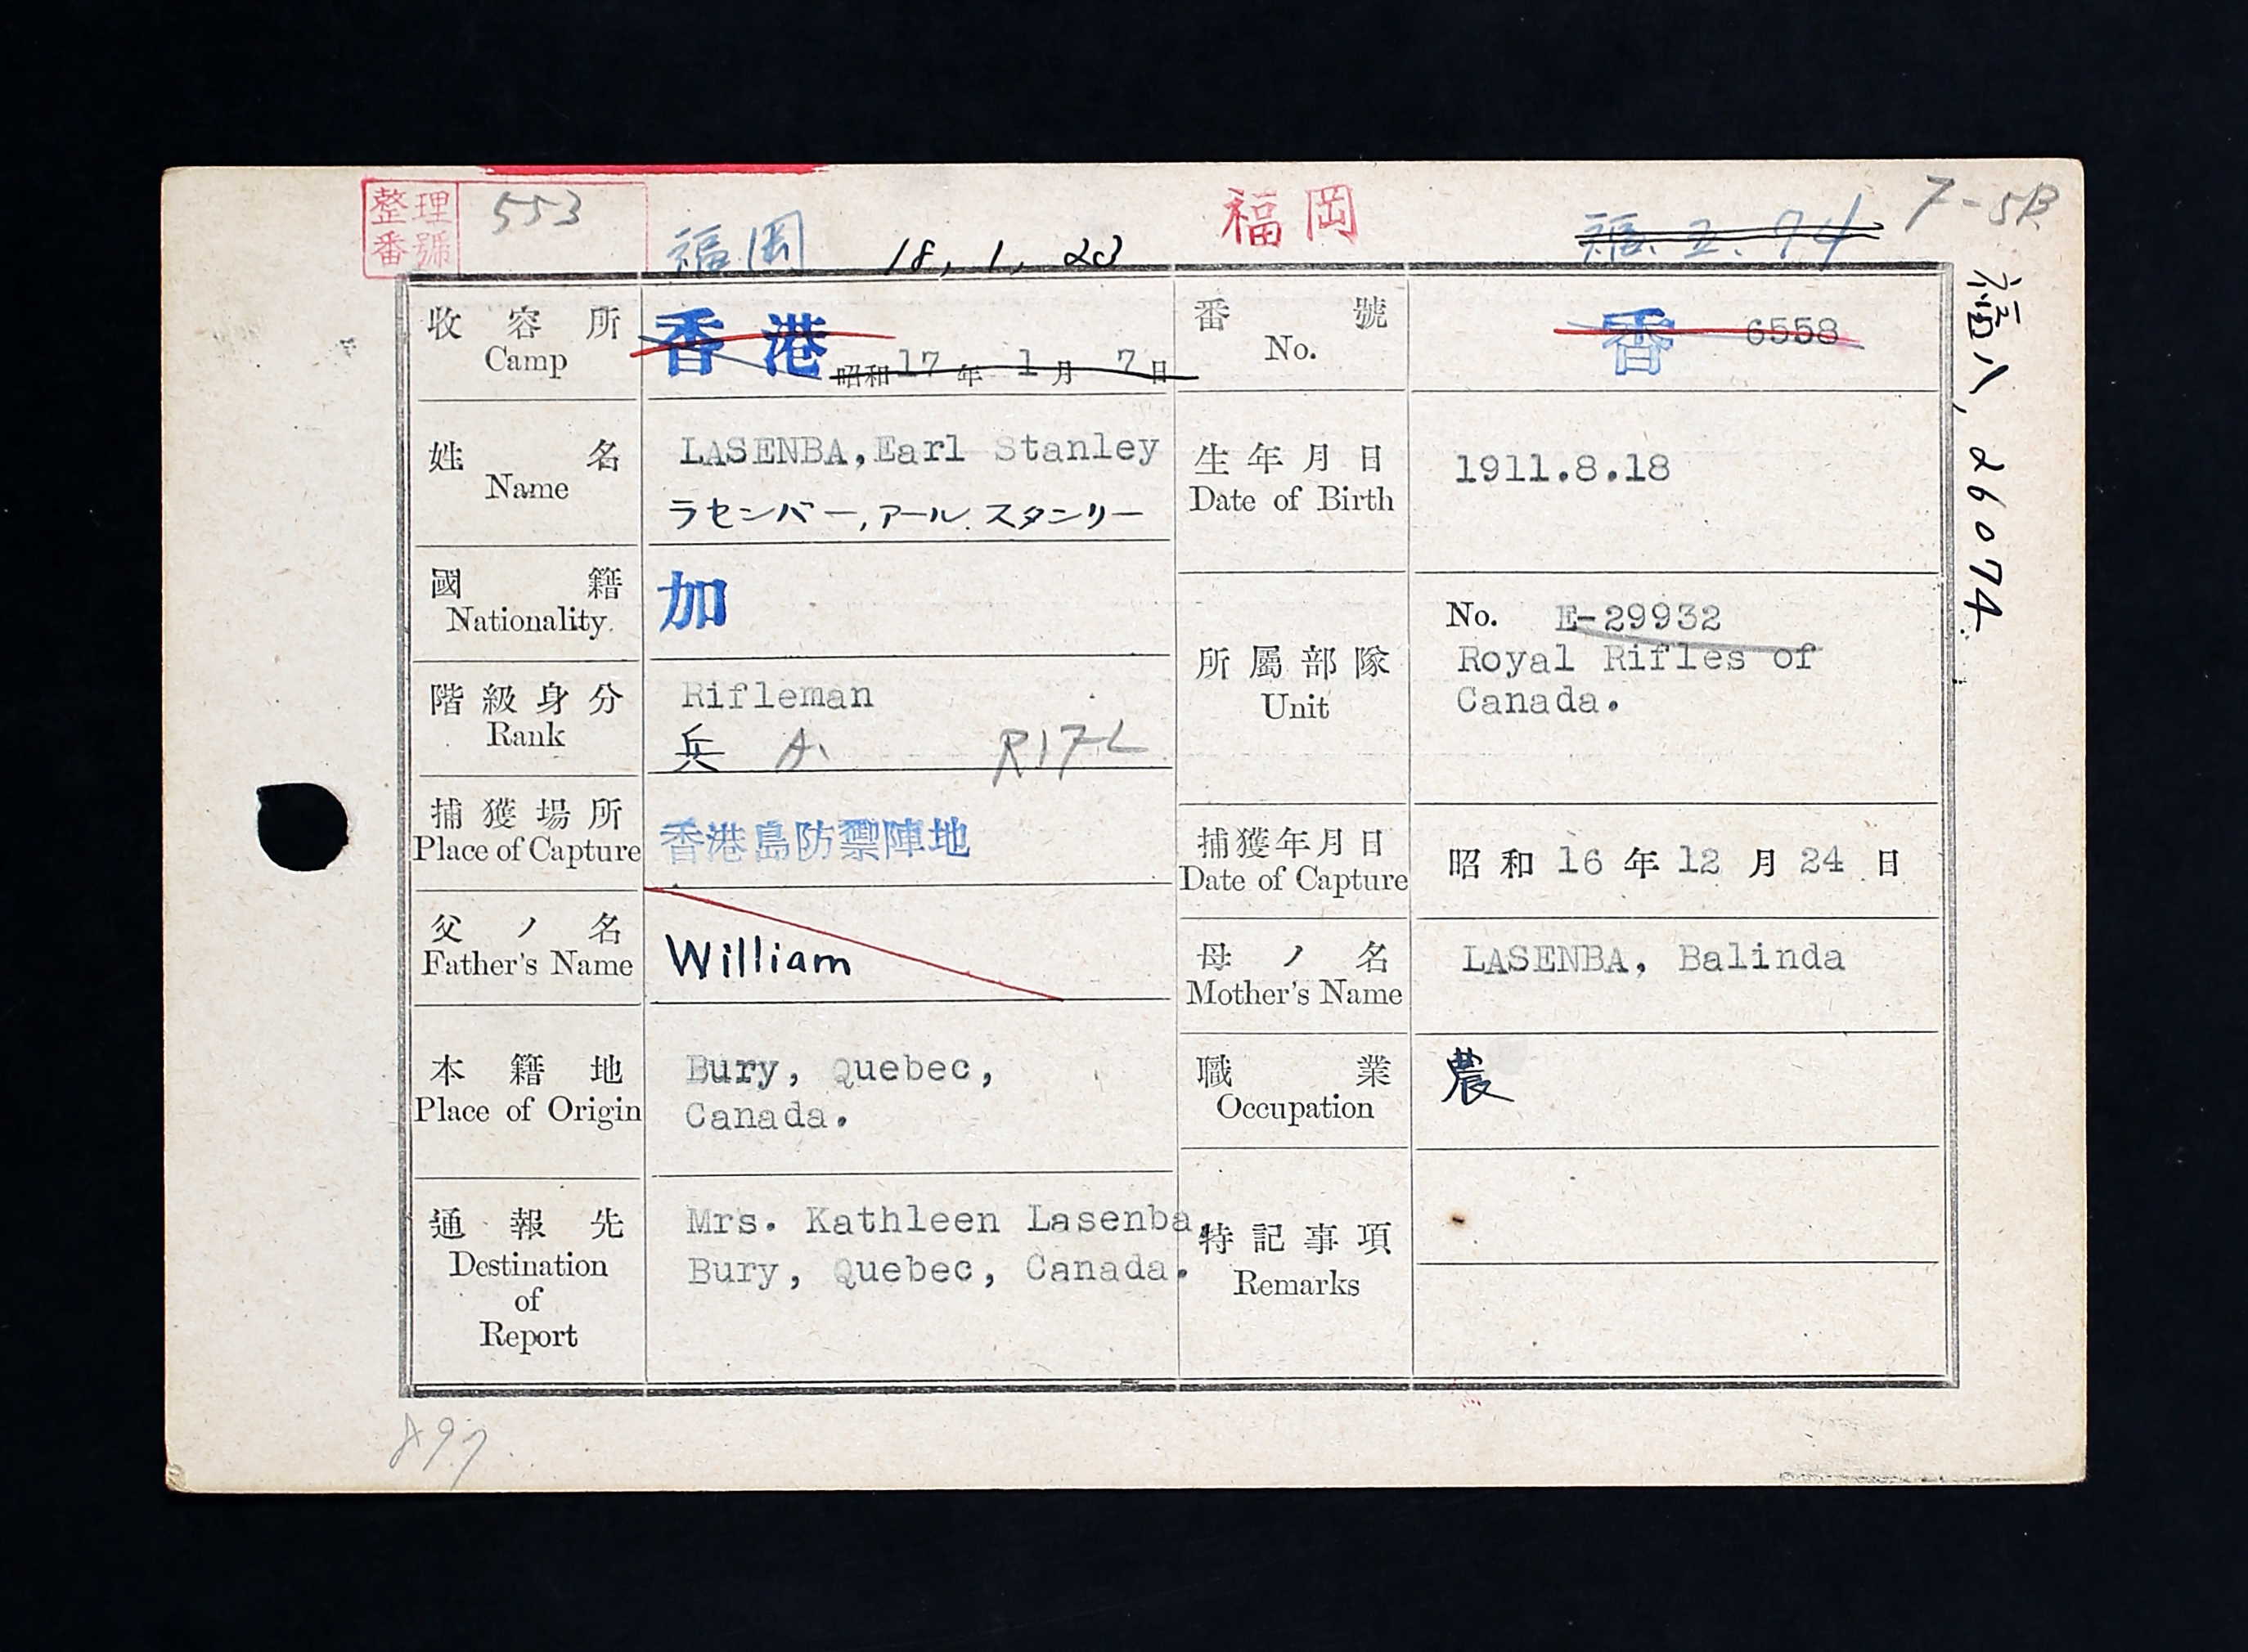 整理番號 553
福岡 18, 1, 23
福岡
福.五.74
7-5B
福八, 26074
收容所
Camp
香港 昭和17年 1月 7日
番號
No.
香 6558
姓名
Name
LASENBA,Earl Stanley
ラセンバー,アール.スタンリー
生年月日
Date of Birth
1911.8.18
國籍
Nationality.
加
所屬部隊
Unit
No. E-29932
Royal Rifles of
Canada.
階級身分
Rank
Rifleman
兵 A. RIFL
捕獲場所
Place of Capture
香港島防禦陣地
捕獲年月日
Date of Capture
昭和16年12月24日
父ノ名
Father's Name
William
母ノ名
Mother's Name
LASENBA, Balinda
本籍地
Place of Origin
Bury, Quebec,
Canada.
職業
Occupation
農
通報先
Destination
of
Report
Mrs. Kathleen Lasenba,
Bury, Quebec, Canada.
特記事項
Remarks
897